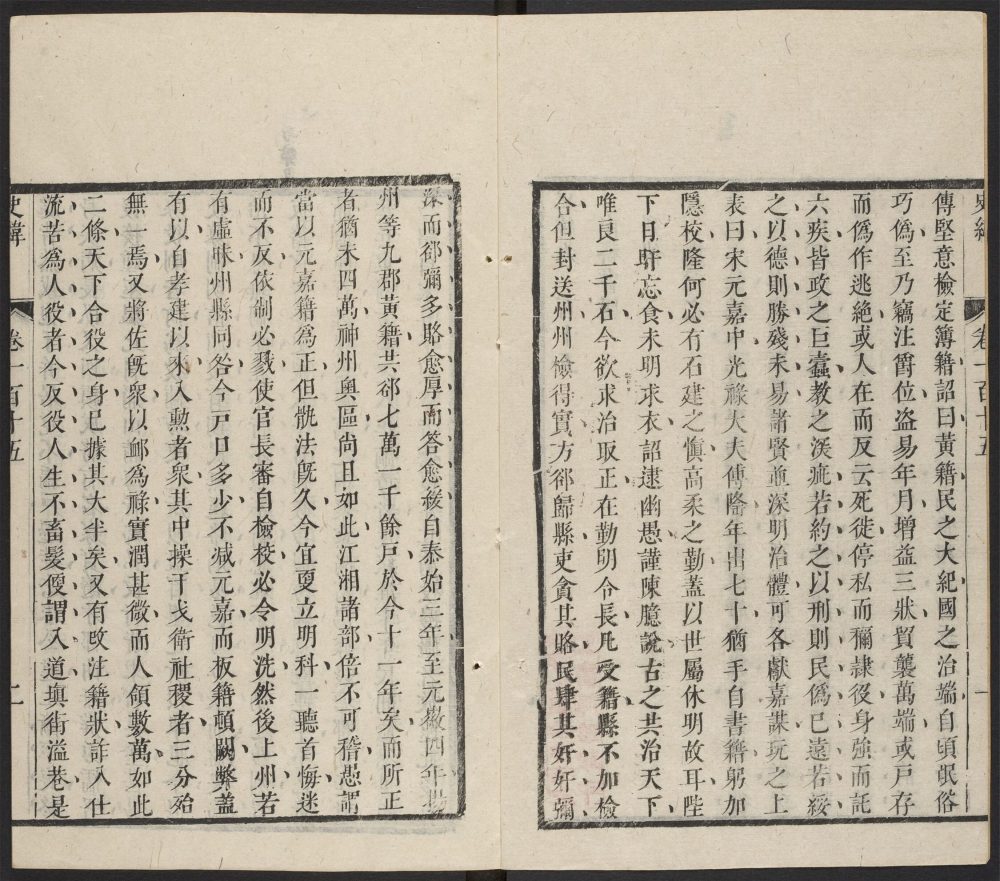 史緯
卷一百十五
一
傅堅意檢定簿籍詔曰黃籍民之大紀國之治端自頃氓俗
巧偽至乃竊注爵位盜易年月增益三狀貿襲萬端或戸存
而偽作逃絕或人在而反云死徙停私而稱隷役身強而託
六疾皆政之巨蠹教之深疵若約之以刑則民偽已遠若綏
之以德則勝殘未易諸賢竝深明治體可各獻嘉謀玩之上
表曰宋元嘉中光祿大夫傅隆年出七十猶手自書籍躬加
隱校隆何必有石建之愼高柔之勤蓋以世屬休明故耳陛
下日旰忘食未明求衣詔逮幽愚謹陳臆說古之共治天下
唯良二千石今欲求治取正在勤明令長凡受籍縣不加檢
合但封送州州檢得實方郤歸縣吏貪其賂民肆其奸奸彌
深而郤彌多賂愈厚而答愈綏自泰始三年至元徽四年揚
州等九郡黃籍共郤七萬一千餘戸於今十一年矣而所正
者猶未四萬神州奧區尚且如此江湘諸部倍不可稽愚謂
當以元嘉籍爲正但骩法旣久今宜更立明科一聽首悔迷
而不反依制必戮使官長審自檢校必令明洗然後上州若
有虛昧州縣同咎今戸口多少不减元嘉而板籍頓闕弊蓋
有以自孝建以來入勲者衆其中操干戈衛社稷者三分殆
無一焉又將佐旣衆以䘏爲祿實潤甚微而人領數萬如此
二條天下合役之身已據其大半矣又有攺注籍狀詐入仕
流苦爲人役者今反役人生不畜髮便謂入道塡街溢巷是
史緯
卷一百十五
二